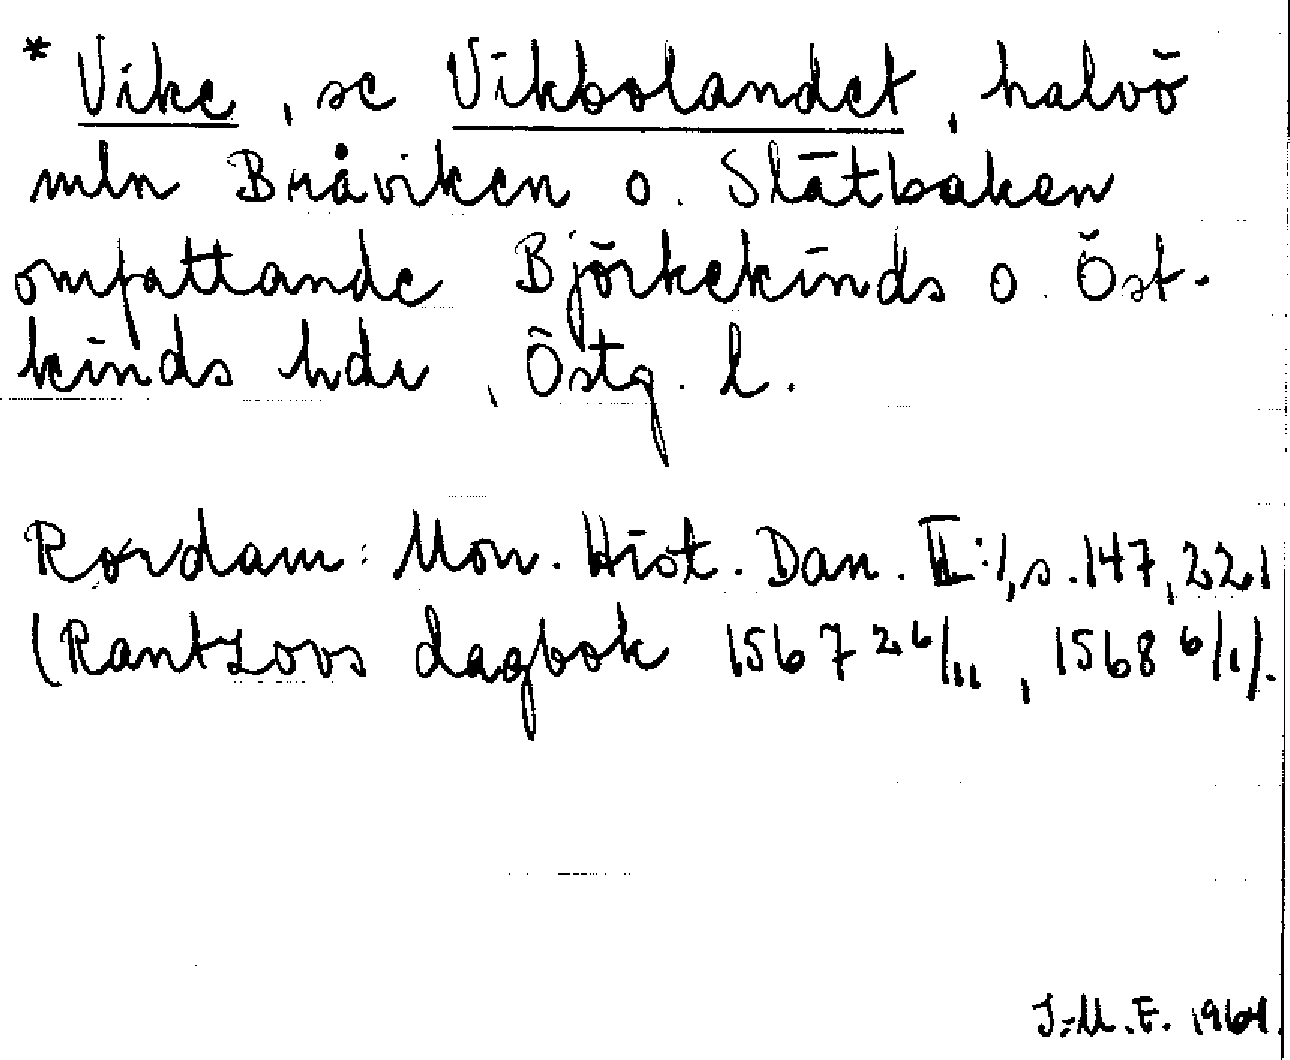 * Vike, se Vikbolandet, halvö
mln Bråviken o. Slätbaken
omfattande Björkekinds o. Öst-
kinds hdr, Östg. l.
Rørdam: Mon. Hist. Dan. II:1, s. 147, 221
(Rantzovs dagbok 1567 26/11, 1568 6/1).
J.M.F. 1964.